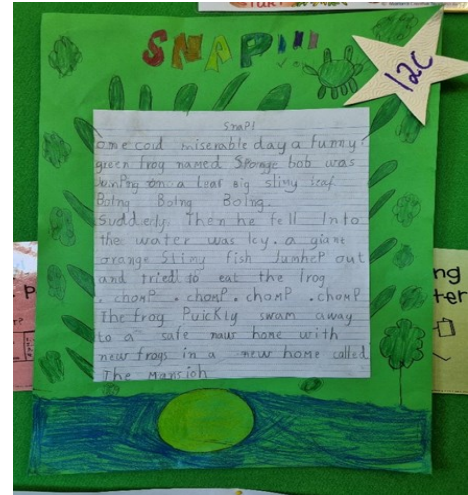 SNAP!!!
12C
Snap!
one cold miserable day a funny
green frog named Sponge bob was
Jumping on a leaf big slimy leaf
Boing Boing Boing.
Suddenly. Then he fell Into
the water was Icy. a giane
orange Slimy fish JumheP out
and tried to eat the frog
. chomP . chomP . chomP . chomP
The frog Puickly swam away
to a safe naur home with
new frogs in a new home called
The Mansion
ng
ter
P